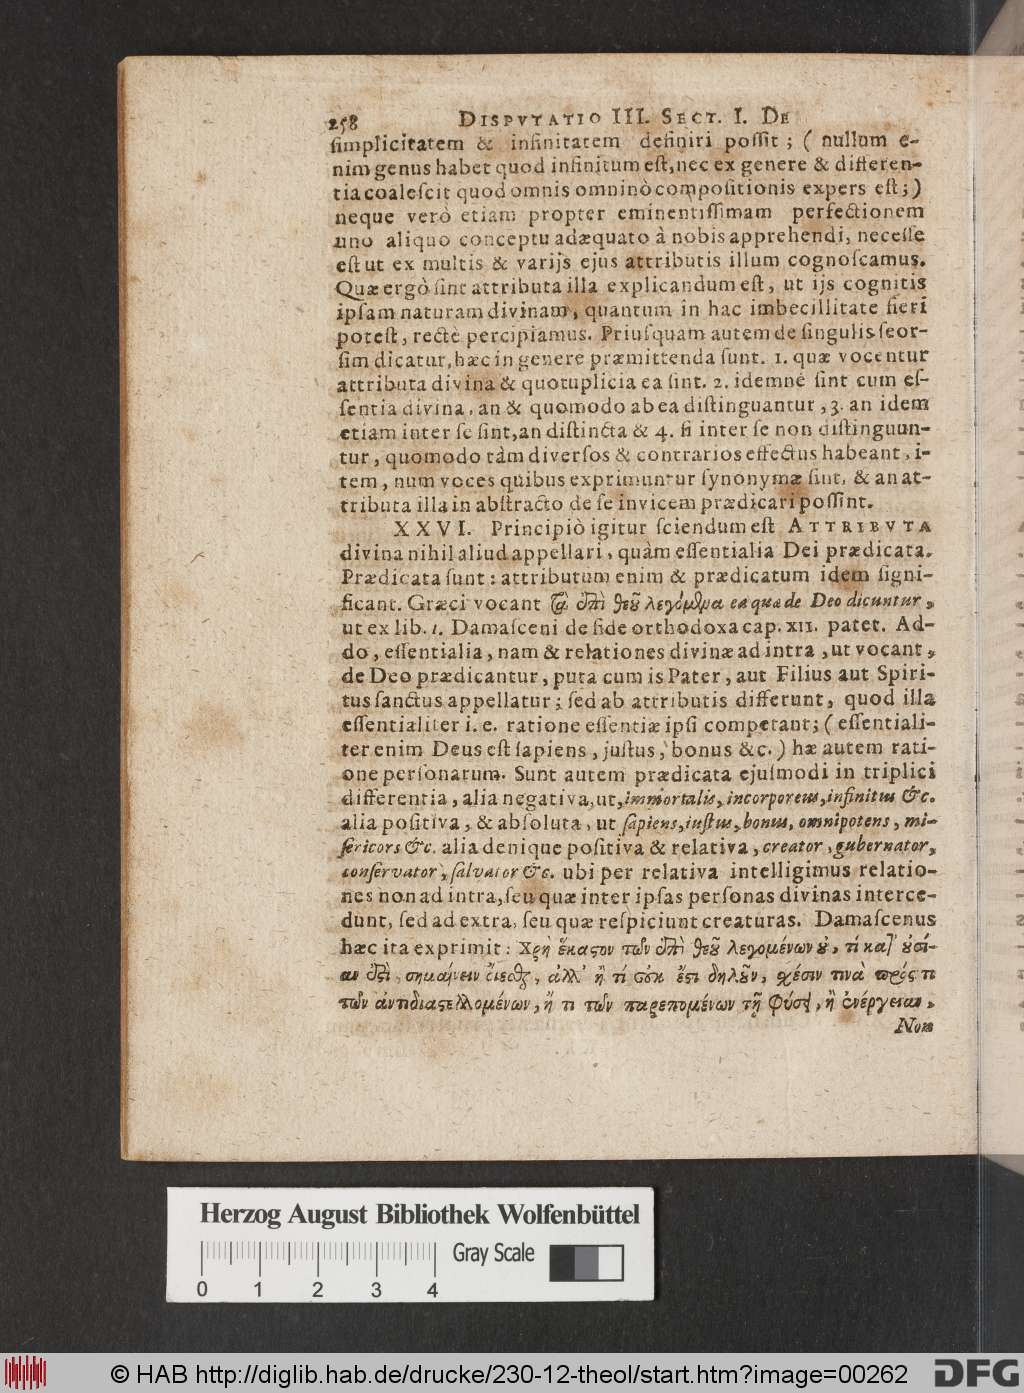 258 DISPVTATIO III. SECT. I. DE
ſimplicitatem & infinitatem definiri poſſit ; ( nullum e-
nim genus habet quod infinitum eſt, nec ex genere & differen-
tia coaleſcit quod omnis omninò compoſitionis expers eſt ; )
neque verò etiam propter eminentiſſimam perfectionem
uno aliquo conceptu adæquato à nobis apprehendi, neceſſe
eſt ut ex multis & varijs ejus attributis illum cognoſcamus.
Quæ ergò ſint attributa illa explicandum eſt, ut ijs cognitis
ipſam naturam divinam, quantum in hac imbecillitate fieri
poteſt, rectè percipiamus. Priuſquam autem de ſingulis ſeor-
ſim dicatur, hæc in genere præmittenda ſunt. 1. quæ vocentur
attributa divina & quotuplicia ea ſint. 2. idemné ſint cum eſ-
ſentia divina, an & quomodo ab ea diſtinguantur, 3. an idem
etiam inter ſe ſint, an diſtincta & 4. ſi inter ſe non diſtinguun-
tur, quomodo tàm diverſos & contrarios effectus habeant, i-
tem, num voces quibus exprimuntur ſynonymæ ſint, & an at-
tributa illa in abſtracto de ſe invicem prædicari poſſint.
XXVI. Principiò igitur ſciendum eſt ATTRIBVTA
divina nihil aliud appellari, quàm eſſentialia Dei prædicata.
Prædicata ſunt : attributum enim & prædicatum idem ſigni-
ficant. Græci vocant τὰ ἐπὶ θεοῦ λεγόμενα ea quæ de Deo dicuntur,
ut ex lib. 1. Damaſceni de fide orthodoxa cap. XII. patet. Ad-
do, eſſentialia, nam & relationes divinæ ad intra, ut vocant,
de Deo prædicantur, puta cum is Pater, aut Filius aut Spiri-
tus ſanctus appellatur ; ſed ab attributis differunt, quod illa
eſſentialiter i. e. ratione eſſentiæ ipſi competant ; ( eſſentiali-
ter enim Deus eſt ſapiens, juſtus, bonus &c. ) hæ autem rati-
one perſonarum. Sunt autem prædicata ejuſmodi in triplici
differentia, alia negativa, ut, immortalis, incorporeus, infinitus &c.
alia poſitiva, & abſoluta, ut ſapiens, iuſtus, bonus, omnipotens, mi-
ſericors &c. alia denique poſitiva & relativa, creator, gubernator,
conſervator, ſalvator &c. ubi per relativa intelligimus relatio-
nes non ad intra, ſeu quæ inter ipſas perſonas divinas interce-
dunt, ſed ad extra, ſeu quæ reſpiciunt creaturas. Damaſcenus
hæc ita exprimit : Χρὴ ἕκαστον τῶν ἐπὶ θεοῦ λεγομένων οὐ, τί κατ' οὐσί-
αν ἐστὶ, σημαίνειν οἴεσθαι, ἀλλ' ἢ τί οὐκ ἔστι δηλοῦν, ἢ σχέσιν τινὰ πρός τι
τῶν ἀντιδιαστελλομένων, ἤ τι τῶν παρεπομένων τῇ φύσει, ἢ ἐνέργειαν.
Non
Herzog August Bibliothek Wolfenbüttel
Gray Scale
0 1 2 3 4
© HAB http://diglib.hab.de/drucke/230-12-theol/start.htm?image=00262
DFG